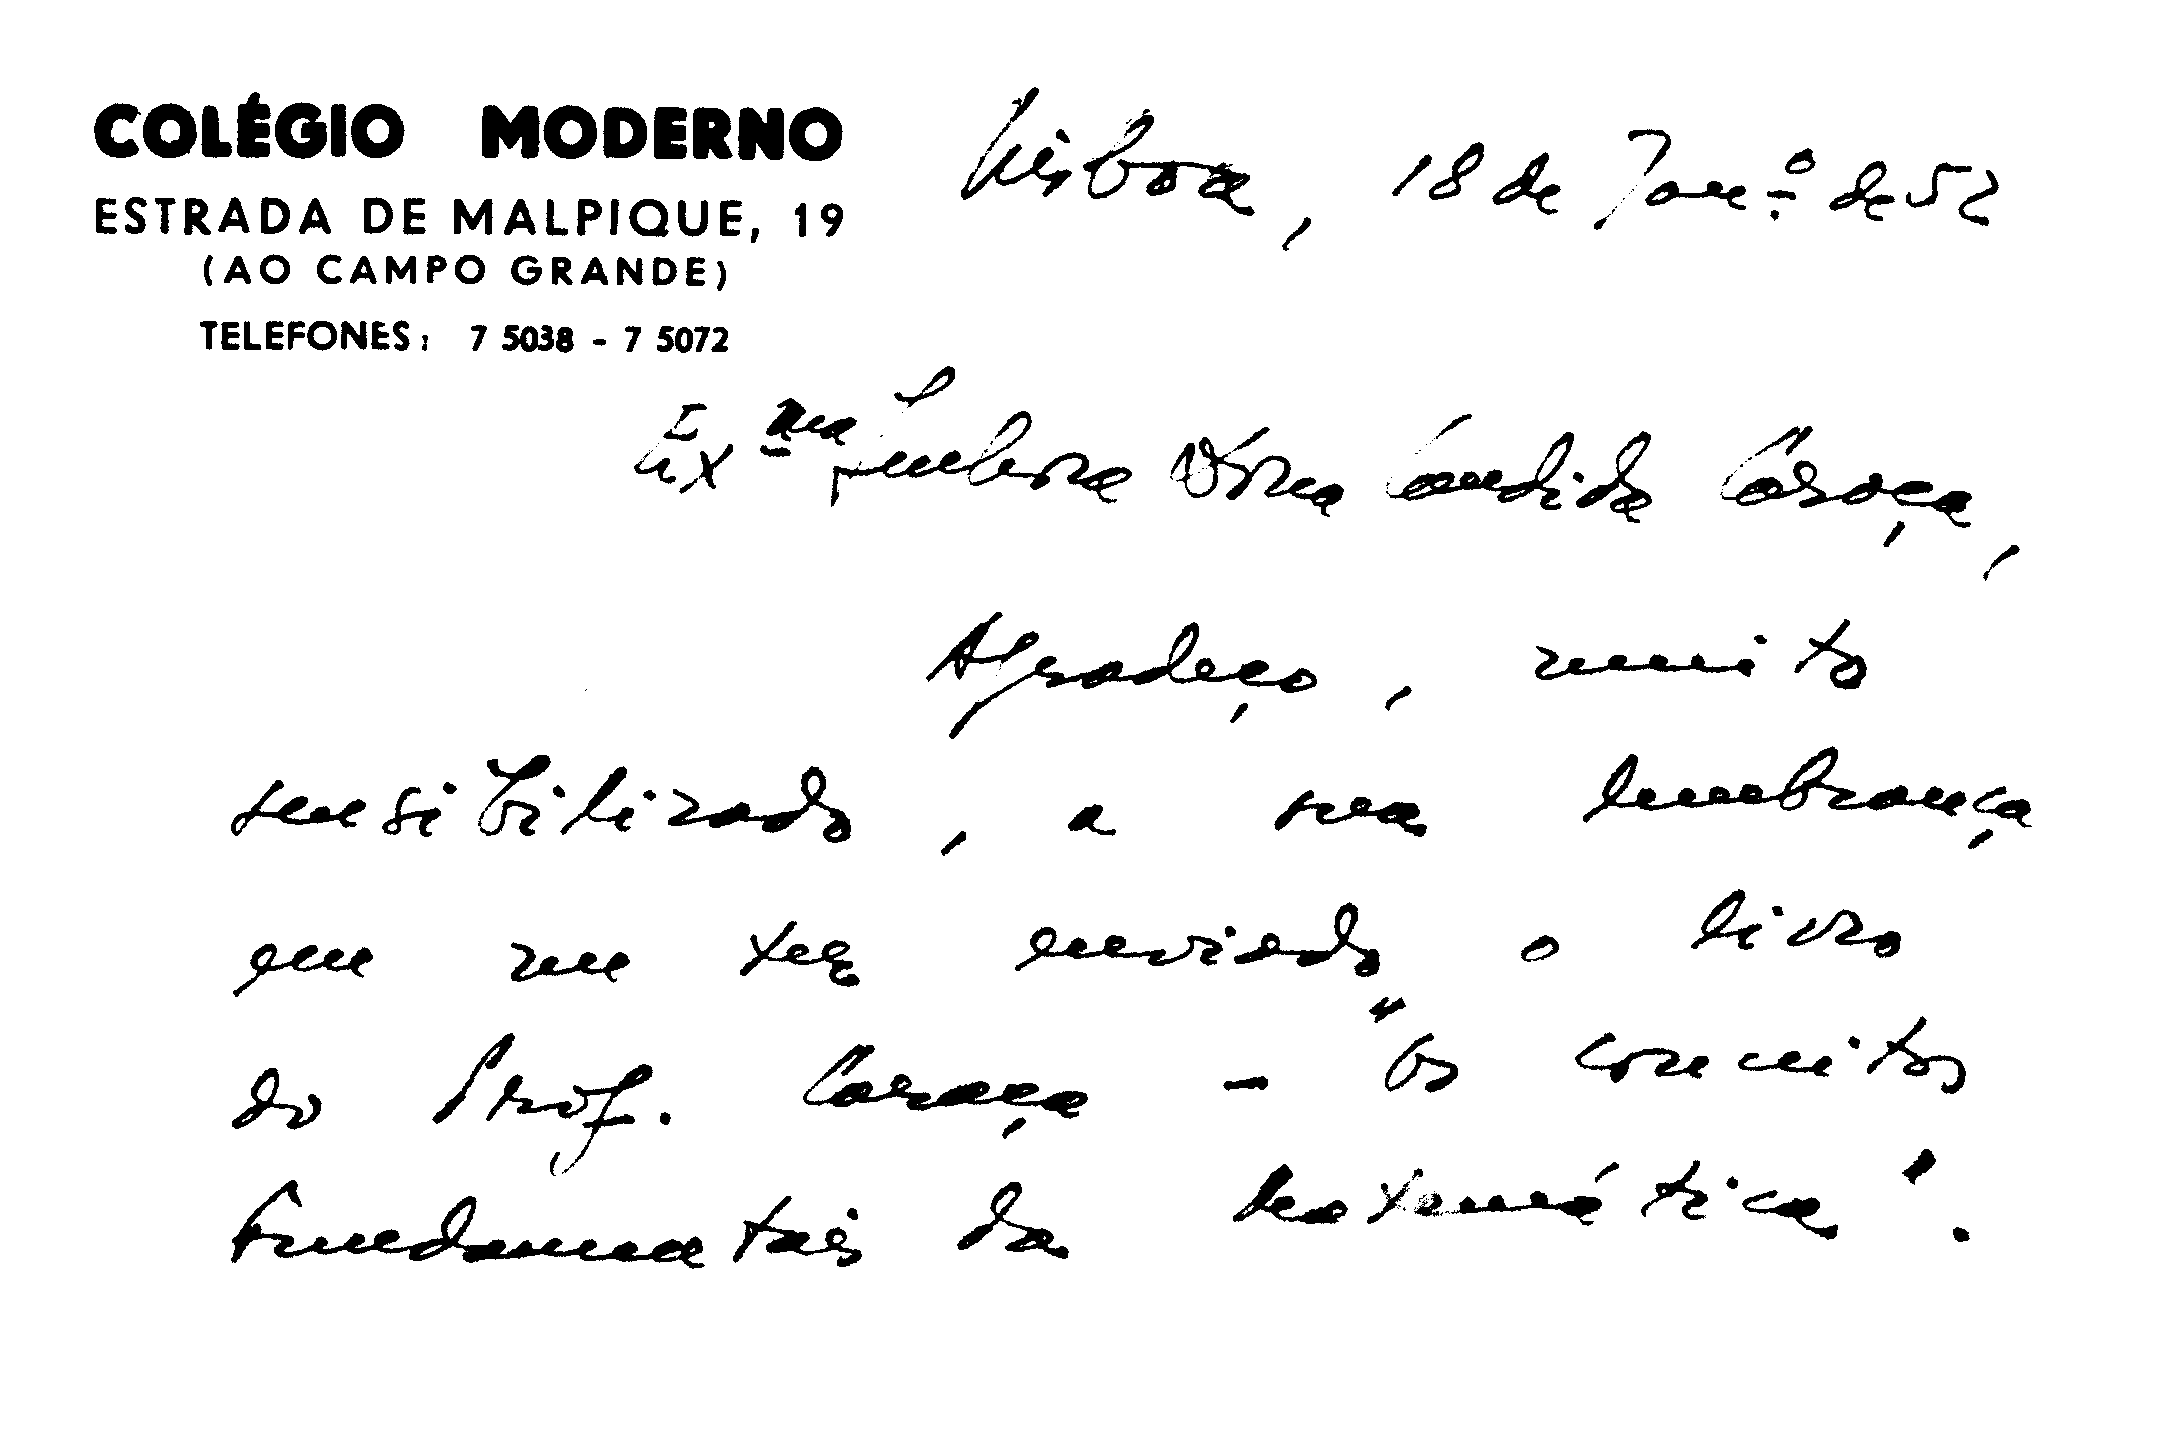 COLÉGIO MODERNO
ESTRADA DE MALPIQUE, 19
(AO CAMPO GRANDE)
TELEFONES: 7 5038 - 7 5072
Lisboa, 18 de Jan.º de 52
Exma Senhora Dona Candida Caraça,
Agradeço, muito
sensibilizado, a sua lembrança
em me ter enviado o livro
do Prof. Caraça - "Os conceitos
Fundamentais da Matemática".